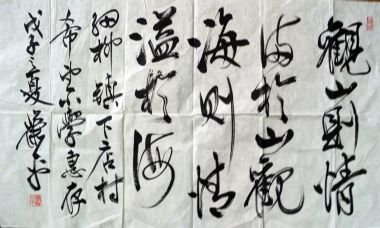 觀山則情
滿於山觀
海則情
溢於海
細柳鎮下店村
希望小學惠存
戊子之夏